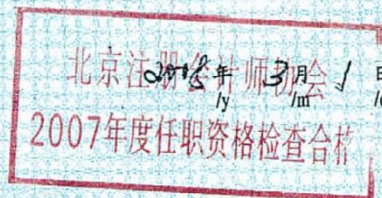 北京注册会计师协会
2008年 3月 1日
/y /m /
2007年度任职资格检查合格